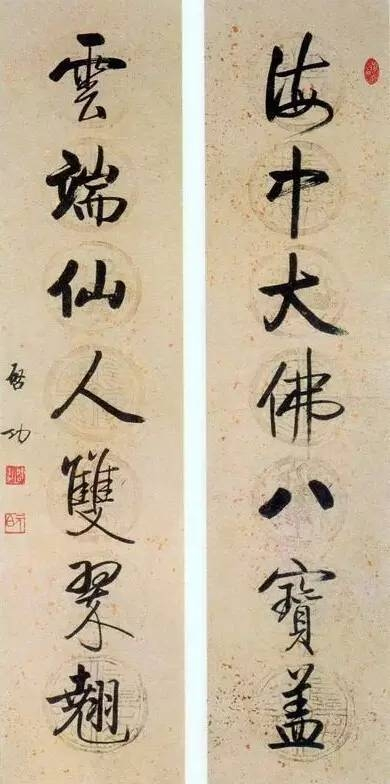 海中大佛八寶盖
雲端仙人雙翠翹
啓功